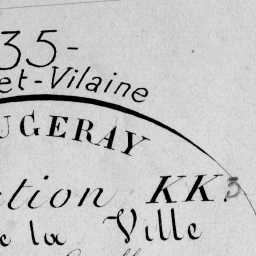 35-
et-Vilaine
UGERAY
ction KK3
e la Ville